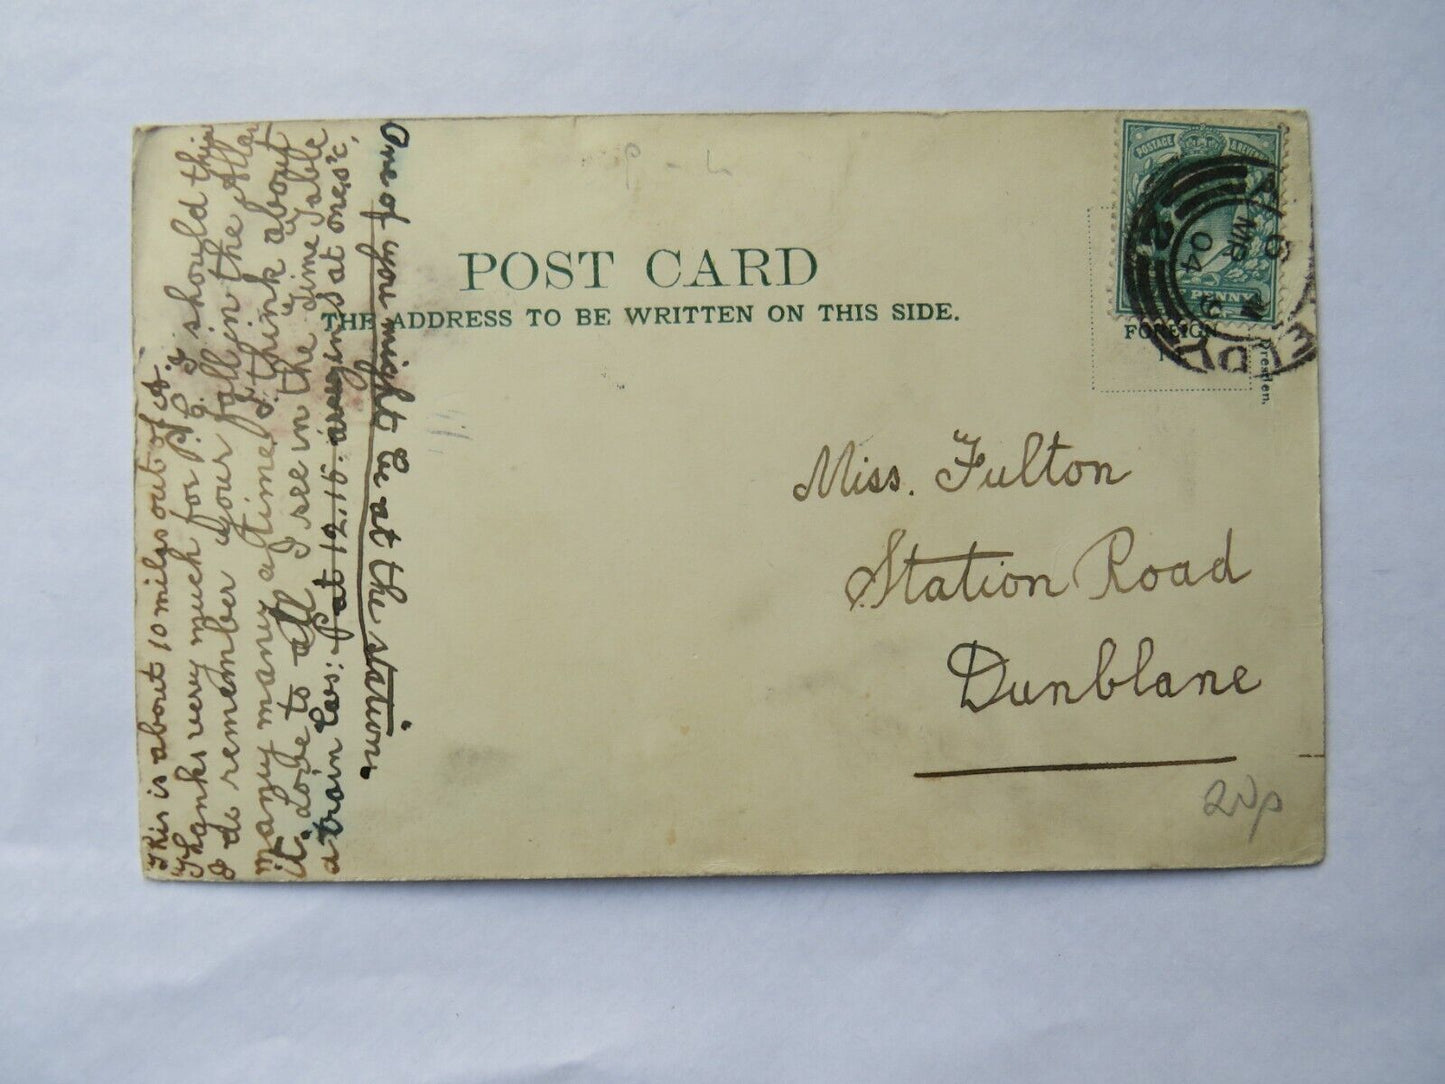 POST CARD
THE ADDRESS TO BE WRITTEN ON THIS SIDE.
POSTAGE & REVENUE
MR
04
FOREIGN
1
Dresden.
Miss. Fulton
Station Road
Dunblane
20p
This is about 10 miles out of A.
Thanks very much for P.C. I should think
I do remember your fall in the Allan
many many a time I think about
it. Love to all I see in the Time Table
a train Les: P at 12.15. at one
One of you might be at the station.